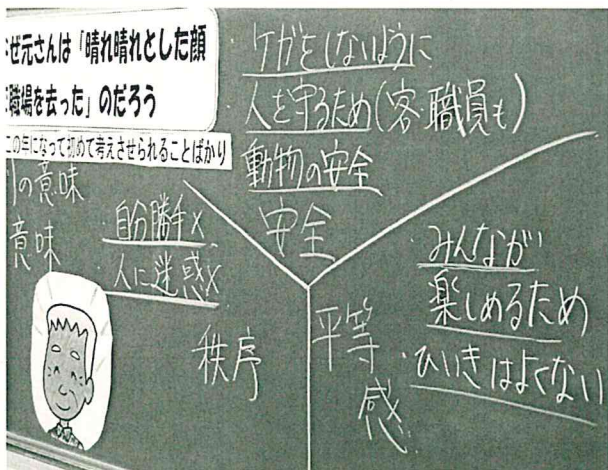 ぜ元さんは「晴れ晴れとした顔
職場を去った」のだろう
この年になって初めて考えさせられることばかり
の意味
意味
・自分勝手×
・人に迷惑×
秩序
ケガをしないように
人を守るため(客・職員も)
動物の安全
安全
・みんなが
楽しめるため
・ひいきはよくない
平等
感